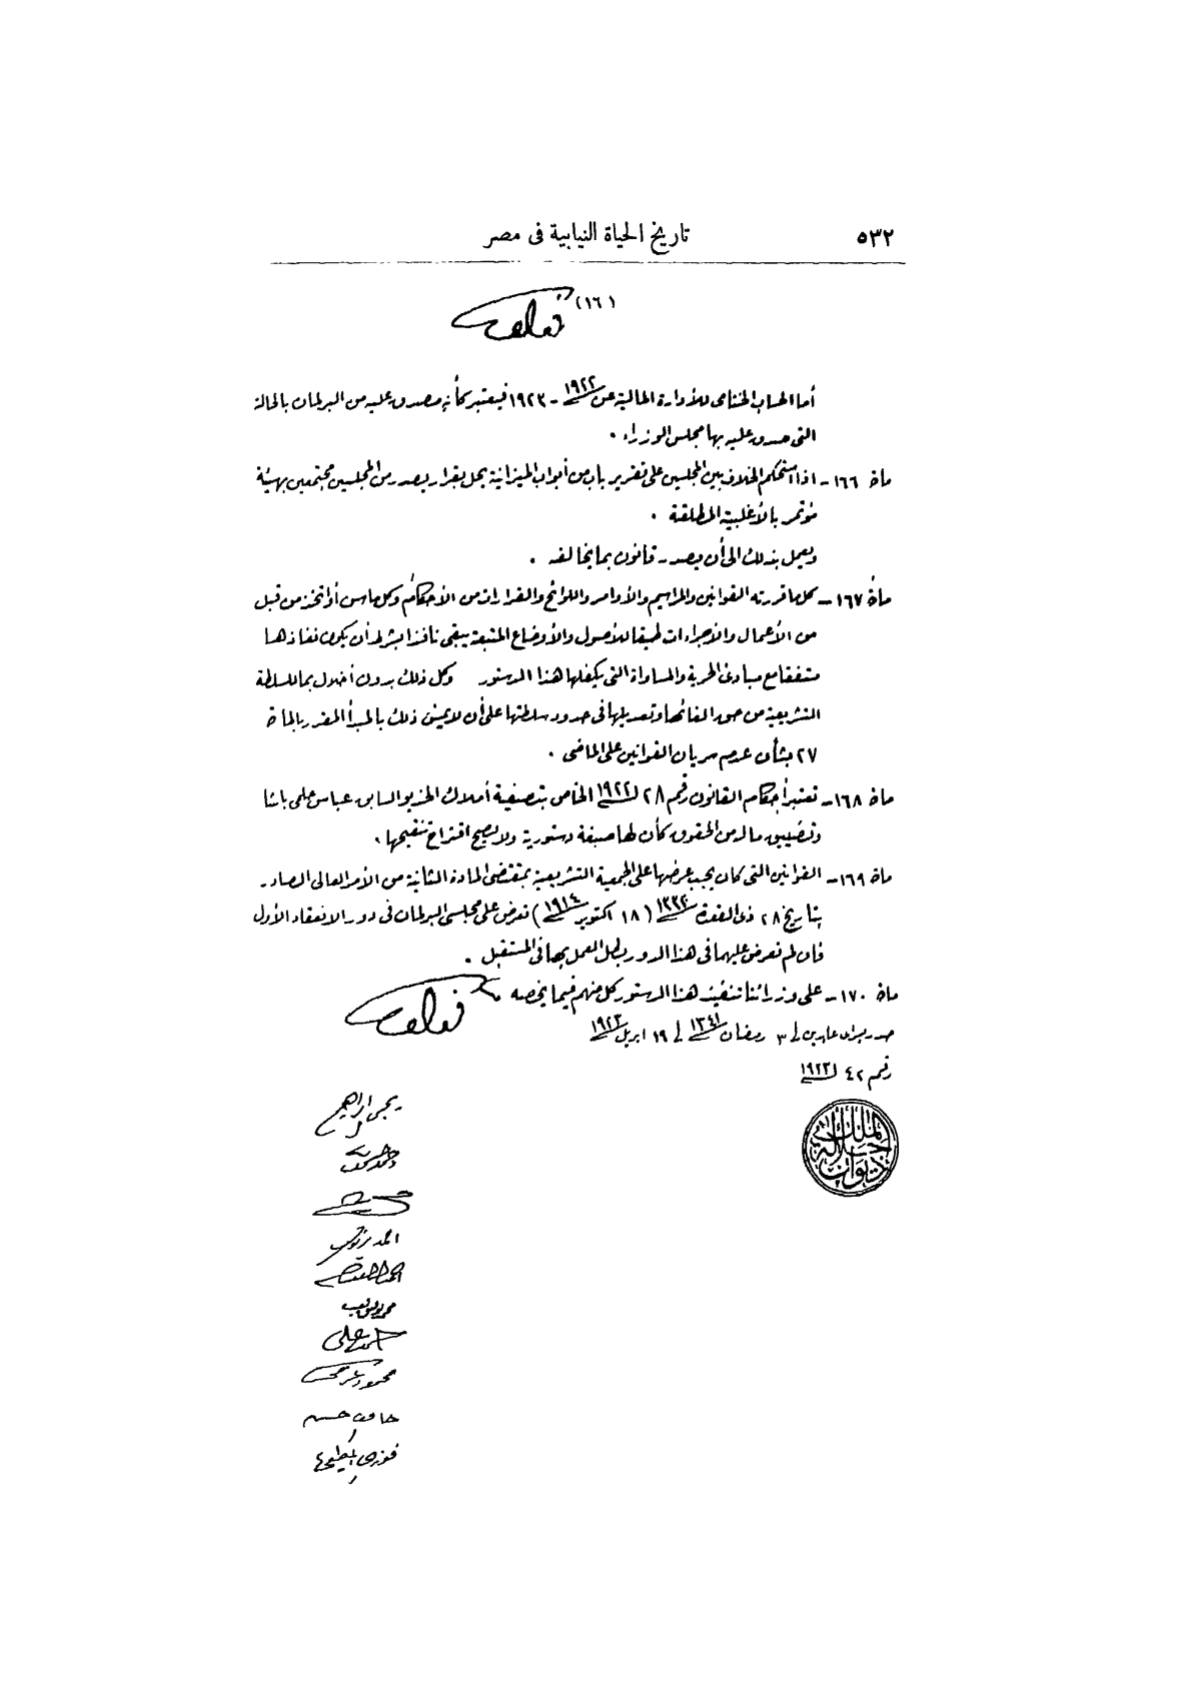 ٥٣٢
تاريخ الحياة النيابية فى مصر
(١٦)
فؤاد
أما الحساب الختامى للأدارة المالية عن ١٩٢٢ - ١٩٢٣ فيعتبر كأنه مصدق عليه من البرلمان بالحالة
التى صدق عليه بها مجلس الوزراء .
مادة ١٦٦ - اذا استحكم الخلاف بين المجلسين على تقرير باب من أبواب الميزانية يحل بقرار يصدر من المجلسين مجتمعين بهيئة
مؤتمر بالأغلبية المطلقة .
ويعمل بذلك الى أن يصدر قانون بما يخالفه .
مادة ١٦٧ - كل ما قررته القوانين والمراسيم والأوامر واللوائح والقرارات من الأحكام وكل ما سن أو اتخذ من قبل
من الأعمال والأجراءات طبقا للأصول والأوضاع المتبعة يبقى نافذا بشرط أن يكون نفاذها
متفقا مع مبادئ الحرية والمساواة التى يكفلها هذا الدستور وكل ذلك بدون أخلال بما للسلطة
التشريعية من حق الغائها وتعديلها فى حدود سلطتها على أن لا يمس ذلك بالمبدأ المقرر بالمادة
٢٧ بشأن عدم سريان القوانين على الماضى .
مادة ١٦٨ - تعتبر أحكام القانون رقم ٢٨ لسنة ١٩٢٢ الخاص بتصفية أملاك الخديو السابق عباس حلمى باشا
وتضييق ماله من الحقوق كأن لها صبغة دستورية ولا يصح اقتراح تنقيحها .
مادة ١٦٩ - القوانين التى كان يجب عرضها على الجمعية التشريعية بمقتضى المادة الثانية من الأمر العالى الصادر
بتاريخ ٢٨ ذى القعدة سنة ١٣٣٢ (١٨ اكتوبر سنة ١٩١٤) تعرض على مجلسى البرلمان فى دور الانعقاد الأول
فان لم تعرض عليهما فى هذا الدور بطل العمل بها فى المستقبل .
مادة ١٧٠ - على وزرائنا تنفيذ هذا الدستور كل منهم فيما يخصه
فؤاد
صدر بسراى عابدين فى ٣ رمضان سنة ١٣٤١ فى ١٩ ابريل سنة ١٩٢٣
رقم ٤٢ لسنة ١٩٢٣
ديوان جلالة الملك
يحيى ابراهيم
احمد على
حافظ حسن
فوزى المطيعى